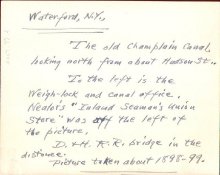 Waterford, N.Y.,
"The old Champlain Canal,
looking north from about Hudson St..
To the left is the
Weigh-lock and canal office.
Nealoi's "Inland Seaman's Union
Store" was off the left of
the picture.
D. & H. R.R. bridge in the
distance.
Picture taken about 1898-99.